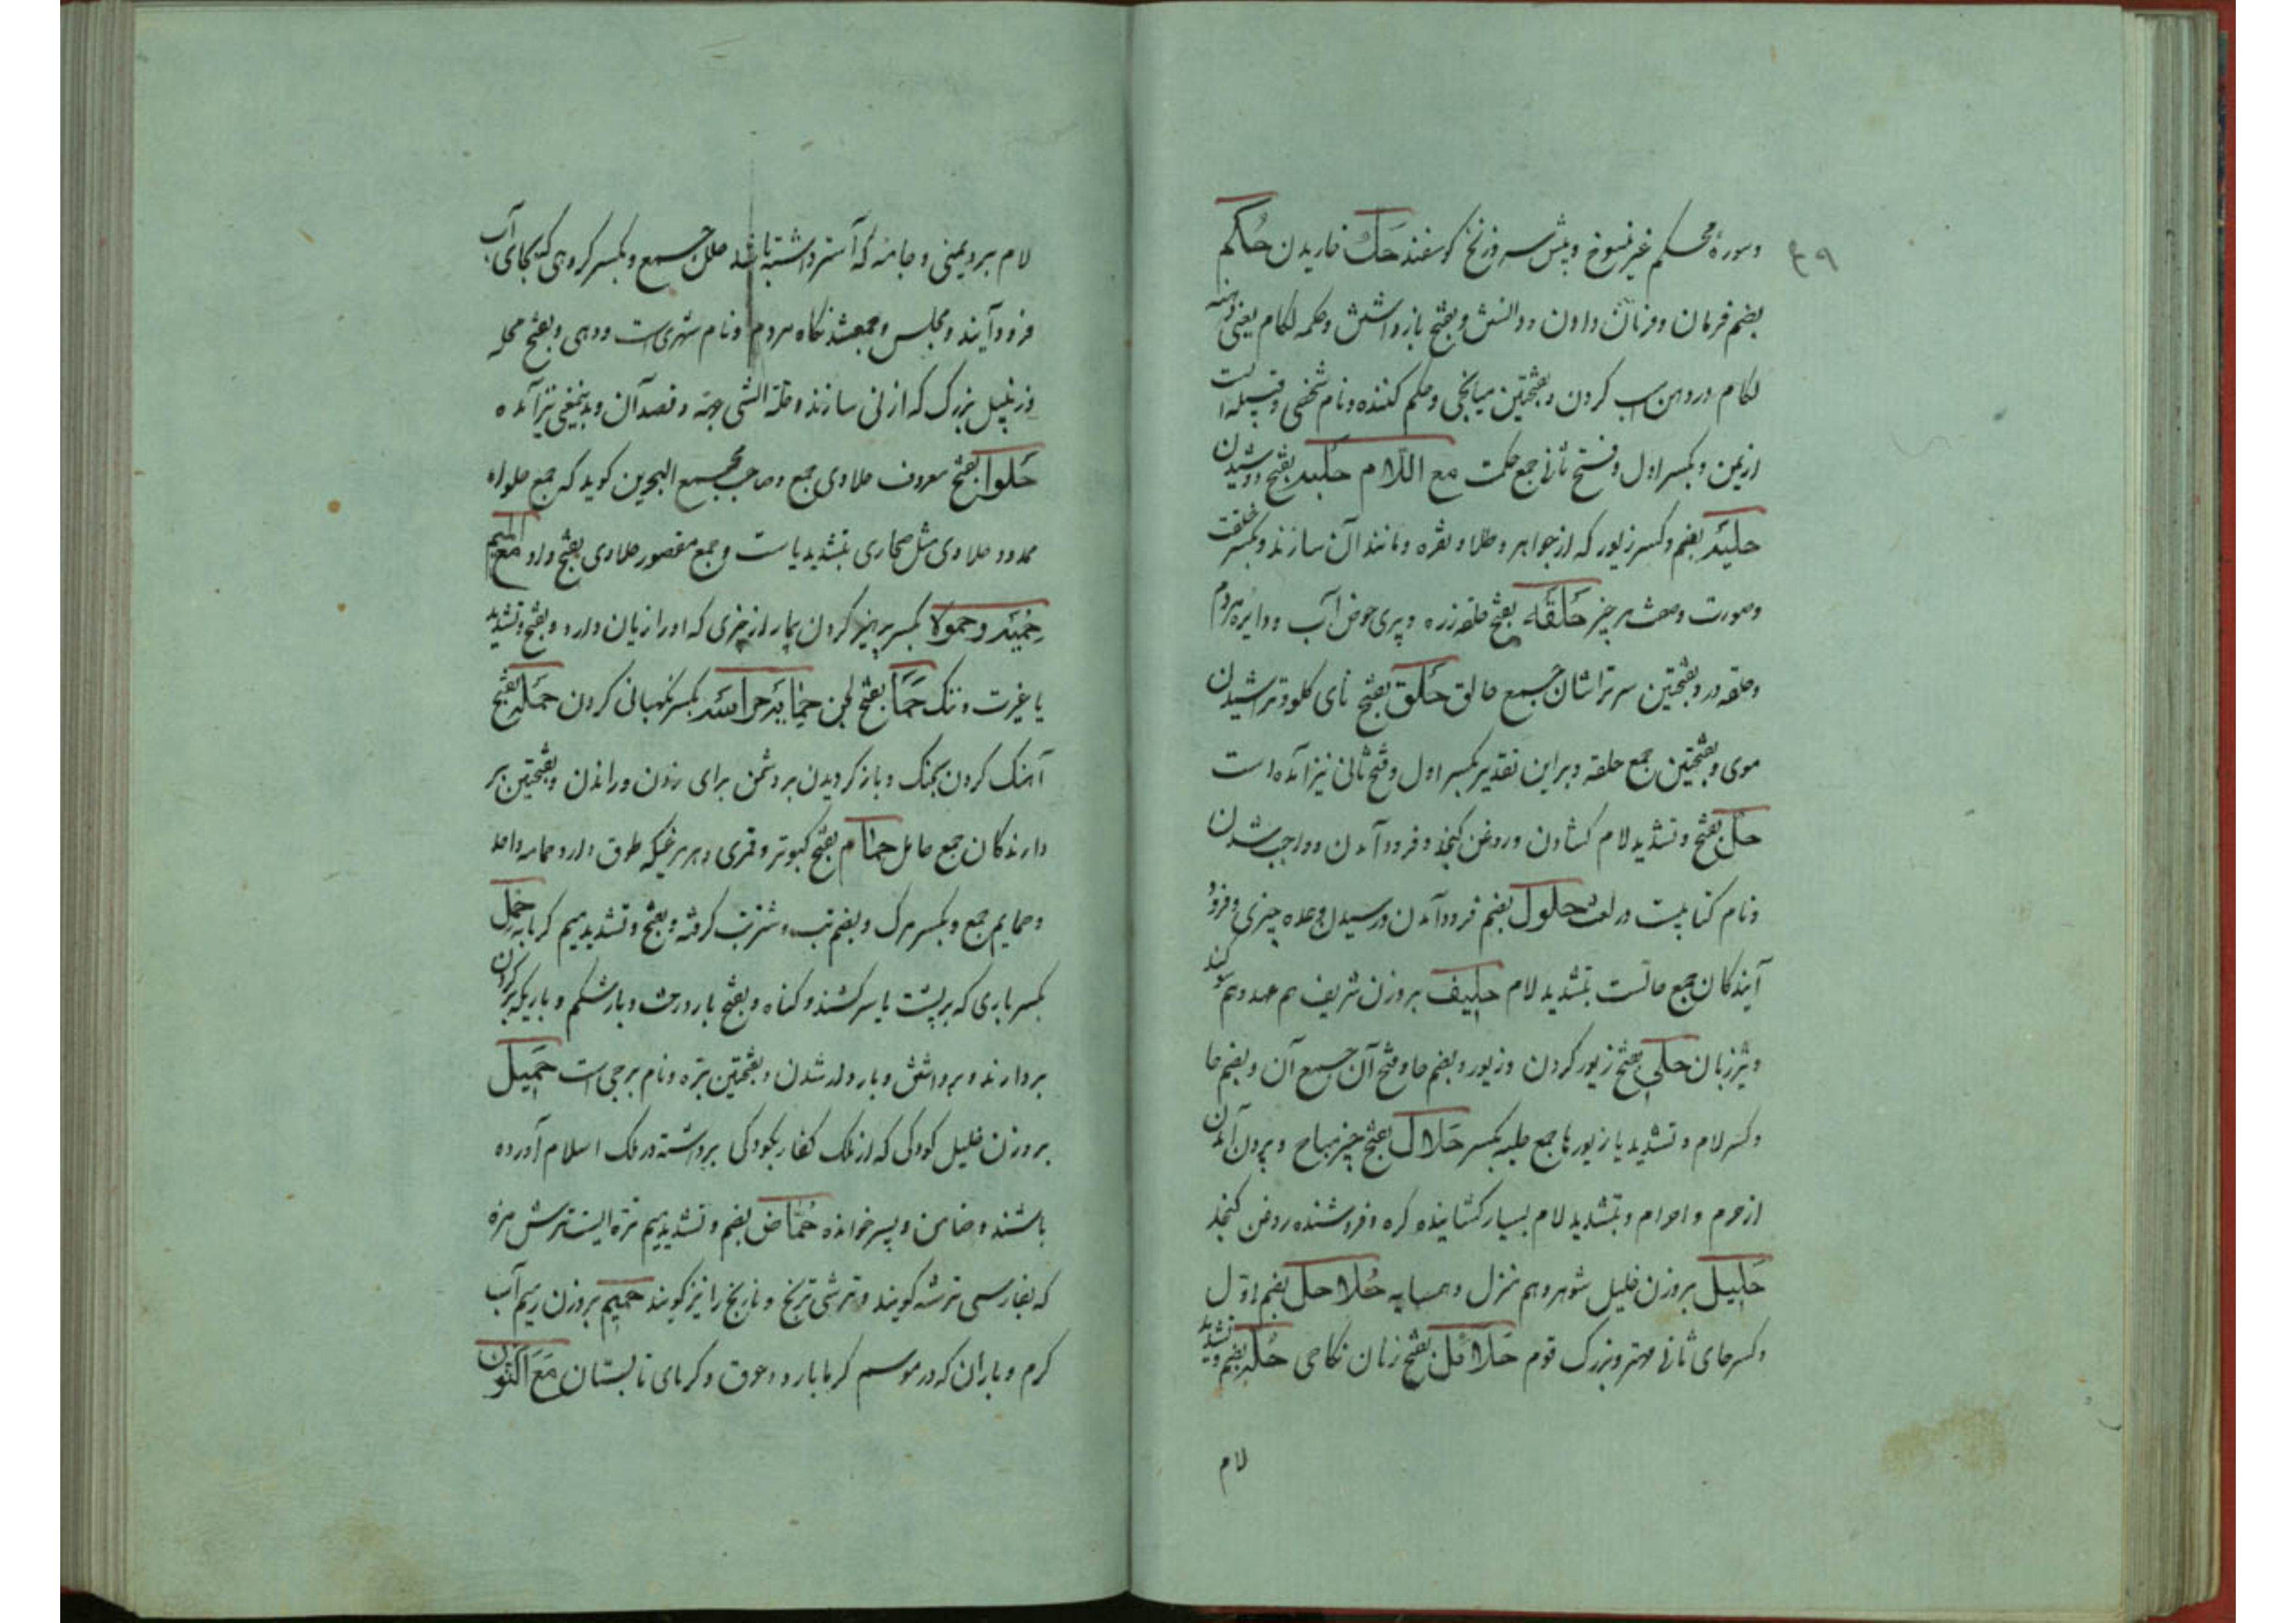 ۴۹
وسورهٔ محکم غیر منسوخ و پیش سر و زنخ کوسفند حک خاریدن حکم
بضم فرمان و فرمان دادن و دانش و بفتح بازداشتن و حکمه لکام یعنی دهنه
لکام در دهن اسب کردن و بفتحتین میانجی و حکم کننده و نام شخصی و قبیله است
از یمن و بکسر اول و فتح ثانی جمع حکمت مع اللام حلبه بفتح دوشیدن
حلیه بضم و کسر زیور که از جواهر و طلا و نقره و مانند آن سازند و بکسر خلقت
وصورت وصفت هر چیز حلقه بفتح حلقه زره و پری حوض آب و دایره مردم
وحلقه در و بفتحتین سر تراشان جمع حالق حلق بفتح نای کلو و تراشیدن
موی و بفتحتین جمع حلقه و براین تقدیر بکسر اول و فتح ثانی نیز آمده است
حل بفتح و تشدید لام کشادن و روغن کنجد و فرود آمدن و واجب شدن
ونام کتابیست در لغت حلول بضم فرود آمدن و رسیدن وعده چیزی و فرود
آیندکان جمع حالست بتشدید لام حلیف بروزن شریف هم عهد و هم سوکند
و تیز زبان حلی بفتح زیور کردن و زیور و بضم حا و فتح آن جمع آن و بضم حا
وکسر لام و تشدید یا زیورها جمع حلیه بکسر حلال بفتح چیز مباح و بیرون آمدن
از حرم و احرام و بتشدید لام بسیار کشاینده کره و فروشنده روغن کنجد
حلیل بروزن خلیل شوهر و هم منزل و همسایه حلاحل بضم اول
وکسر حای ثانی مهتر و بزرک قوم حلائل بفتح زنان نکاحی حله بضم و تشدید
لام
لام برد یمنی و جامه که آستر داشته باشد حلل جمع و بکسر کروهی که بجای آب
فرود آیند و مجلس و مجمع شدنکاه مردم و نام شهری است و دهی و بفتح محله
وزنبیل بزرک که از نی سازند و حلة الشی جهة و قصد آن و بدینمعنی نیز آمده
حلوا بفتح معروف حلاوی جمع و صاحب مجمع البحرین کوید که جمع حلواء
ممدود حلاوی مثل صحاری بتشدید یا است و جمع مقصور حلاوی بفتح واو مع المیم
حمیه و حمولا بکسر پرهیز کردن بیمار از چیزی که او را زیان دارد و بفتح و تشدید
یا غیرت و ننک حما بفتح لجن حمایه حراسه بکسر نکهبانی کردن حمله بفتح
آهنک کردن بجنک و باز کردیدن بر دشمن برای زدن و راندن و بفتحتین بر
دارندکان جمع حامل حمام بفتح کبوتر و قمری و هر مرغیکه طوق دارد حمامه واحد
و حمایم جمع و بکسر مرک و بضم تب و شتر تب کرفته و بفتح و تشدید میم کرمابه حمل
بکسر باری که بر پشت یا سر کشند و کناه و بفتح بار درخت و بار شکم و باریکه بر کردن
بردارند و برداشتن و باردار شدن و بفتحتین بره و نام برجی است حمیل
بروزن خلیل کودکی که از ملک کفار بکودکی برداشته در ملک اسلام آورده
باشند و ضامن و پسر خوانده حماض بضم و تشدید میم تره ایست ترش مزه
که بفارسی ترشه کویند و ترشی ترنج و نارنج را نیز کویند حمیم بروزن رمیم آب
کرم و باران که در موسم کرما بارد و عرق و کرمای تابستان مع النون